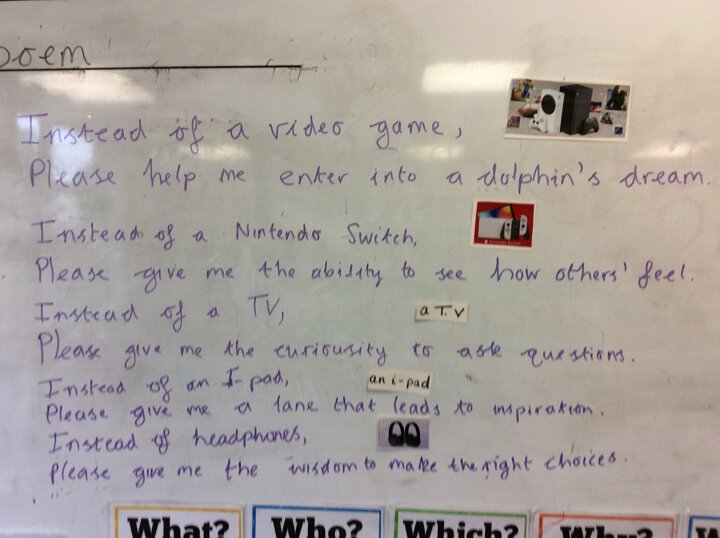 poem
Instead of a video game,
Please help me enter into a dolphin's dream.
Instead of a Nintendo Switch,
Please give me the ability to see how others' feel.
Instead of a TV,
a T.V
Please give me the curiousity to ask questions.
Instead of an I-pad,
an i-pad
Please give me a lane that leads to inspiration.
Instead of headphones,
Please give me the wisdom to make the right choices.
What? Who? Which? Why? W